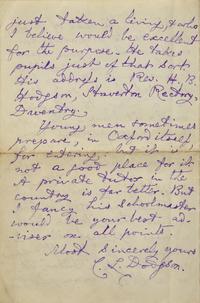 just taken a living, & who
I believe would be excellent
for the purpose. He takes
pupils just of that sort.
His address is Rev. H. B.
Hodgson, Staverton Rectory,
Daventry.
Young men sometimes
prepare, in Oxford itself
for entering, but it is
not a good place for it.
A private tutor in the
country is far better. But
I fancy his schoolmaster
would be your best ad-
-viser on all points.
Most sincerely yours
C. L. Dodgson.